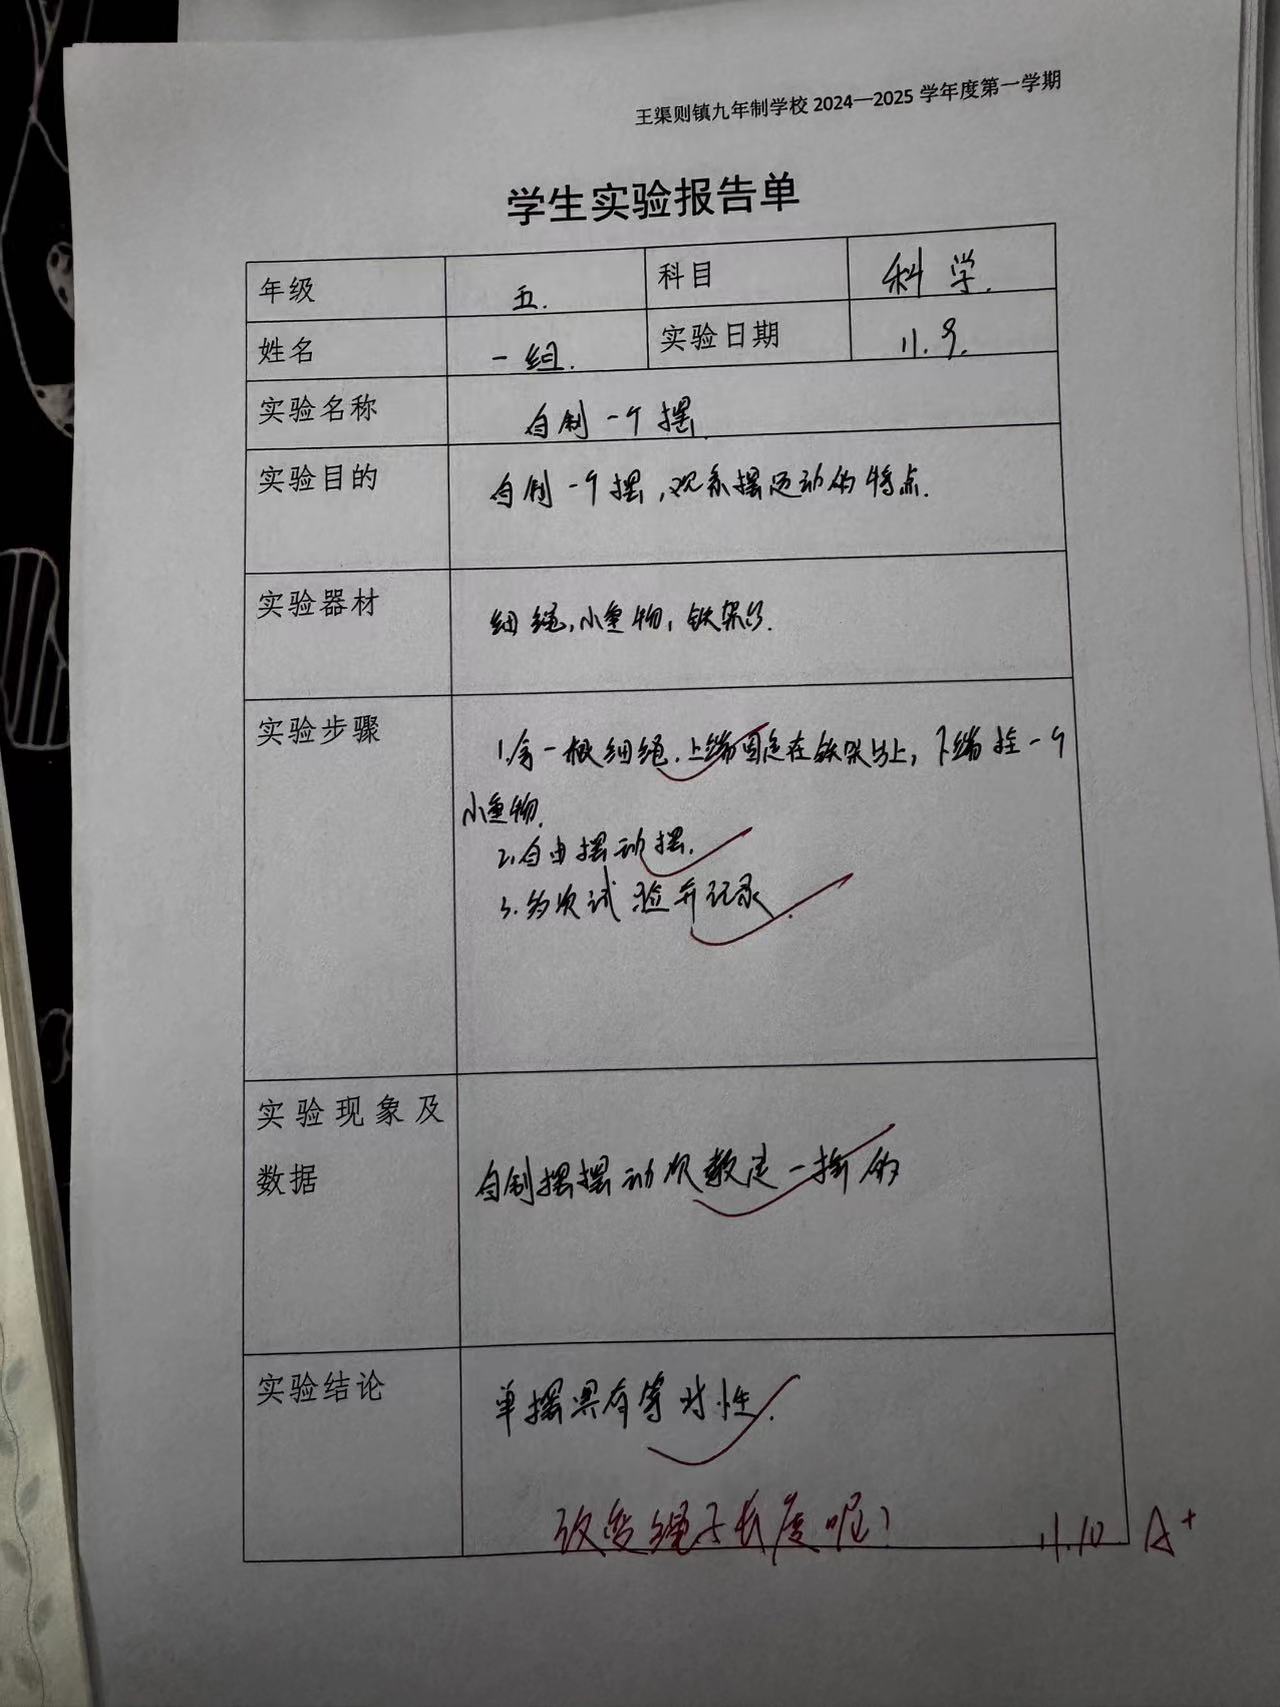 王渠则镇九年制学校 2024—2025 学年度第一学期
学生实验报告单
年级 五. 科目 科学.
姓名 一组. 实验日期 11.9.
实验名称 自制一个摆.
实验目的 自制一个摆,观系摆运动的特点.
实验器材 细绳,小重物,铁架台.
实验步骤 1.拿一根细绳.上端固定在铁架台上,下端拴一个
小重物.
2.自由摆动摆.
3.多次试验并记录.
实验现象及
数据 自制摆摆动次数是一样的
实验结论 单摆具有等时性.
改变绳子长度呢?
11.10 A+